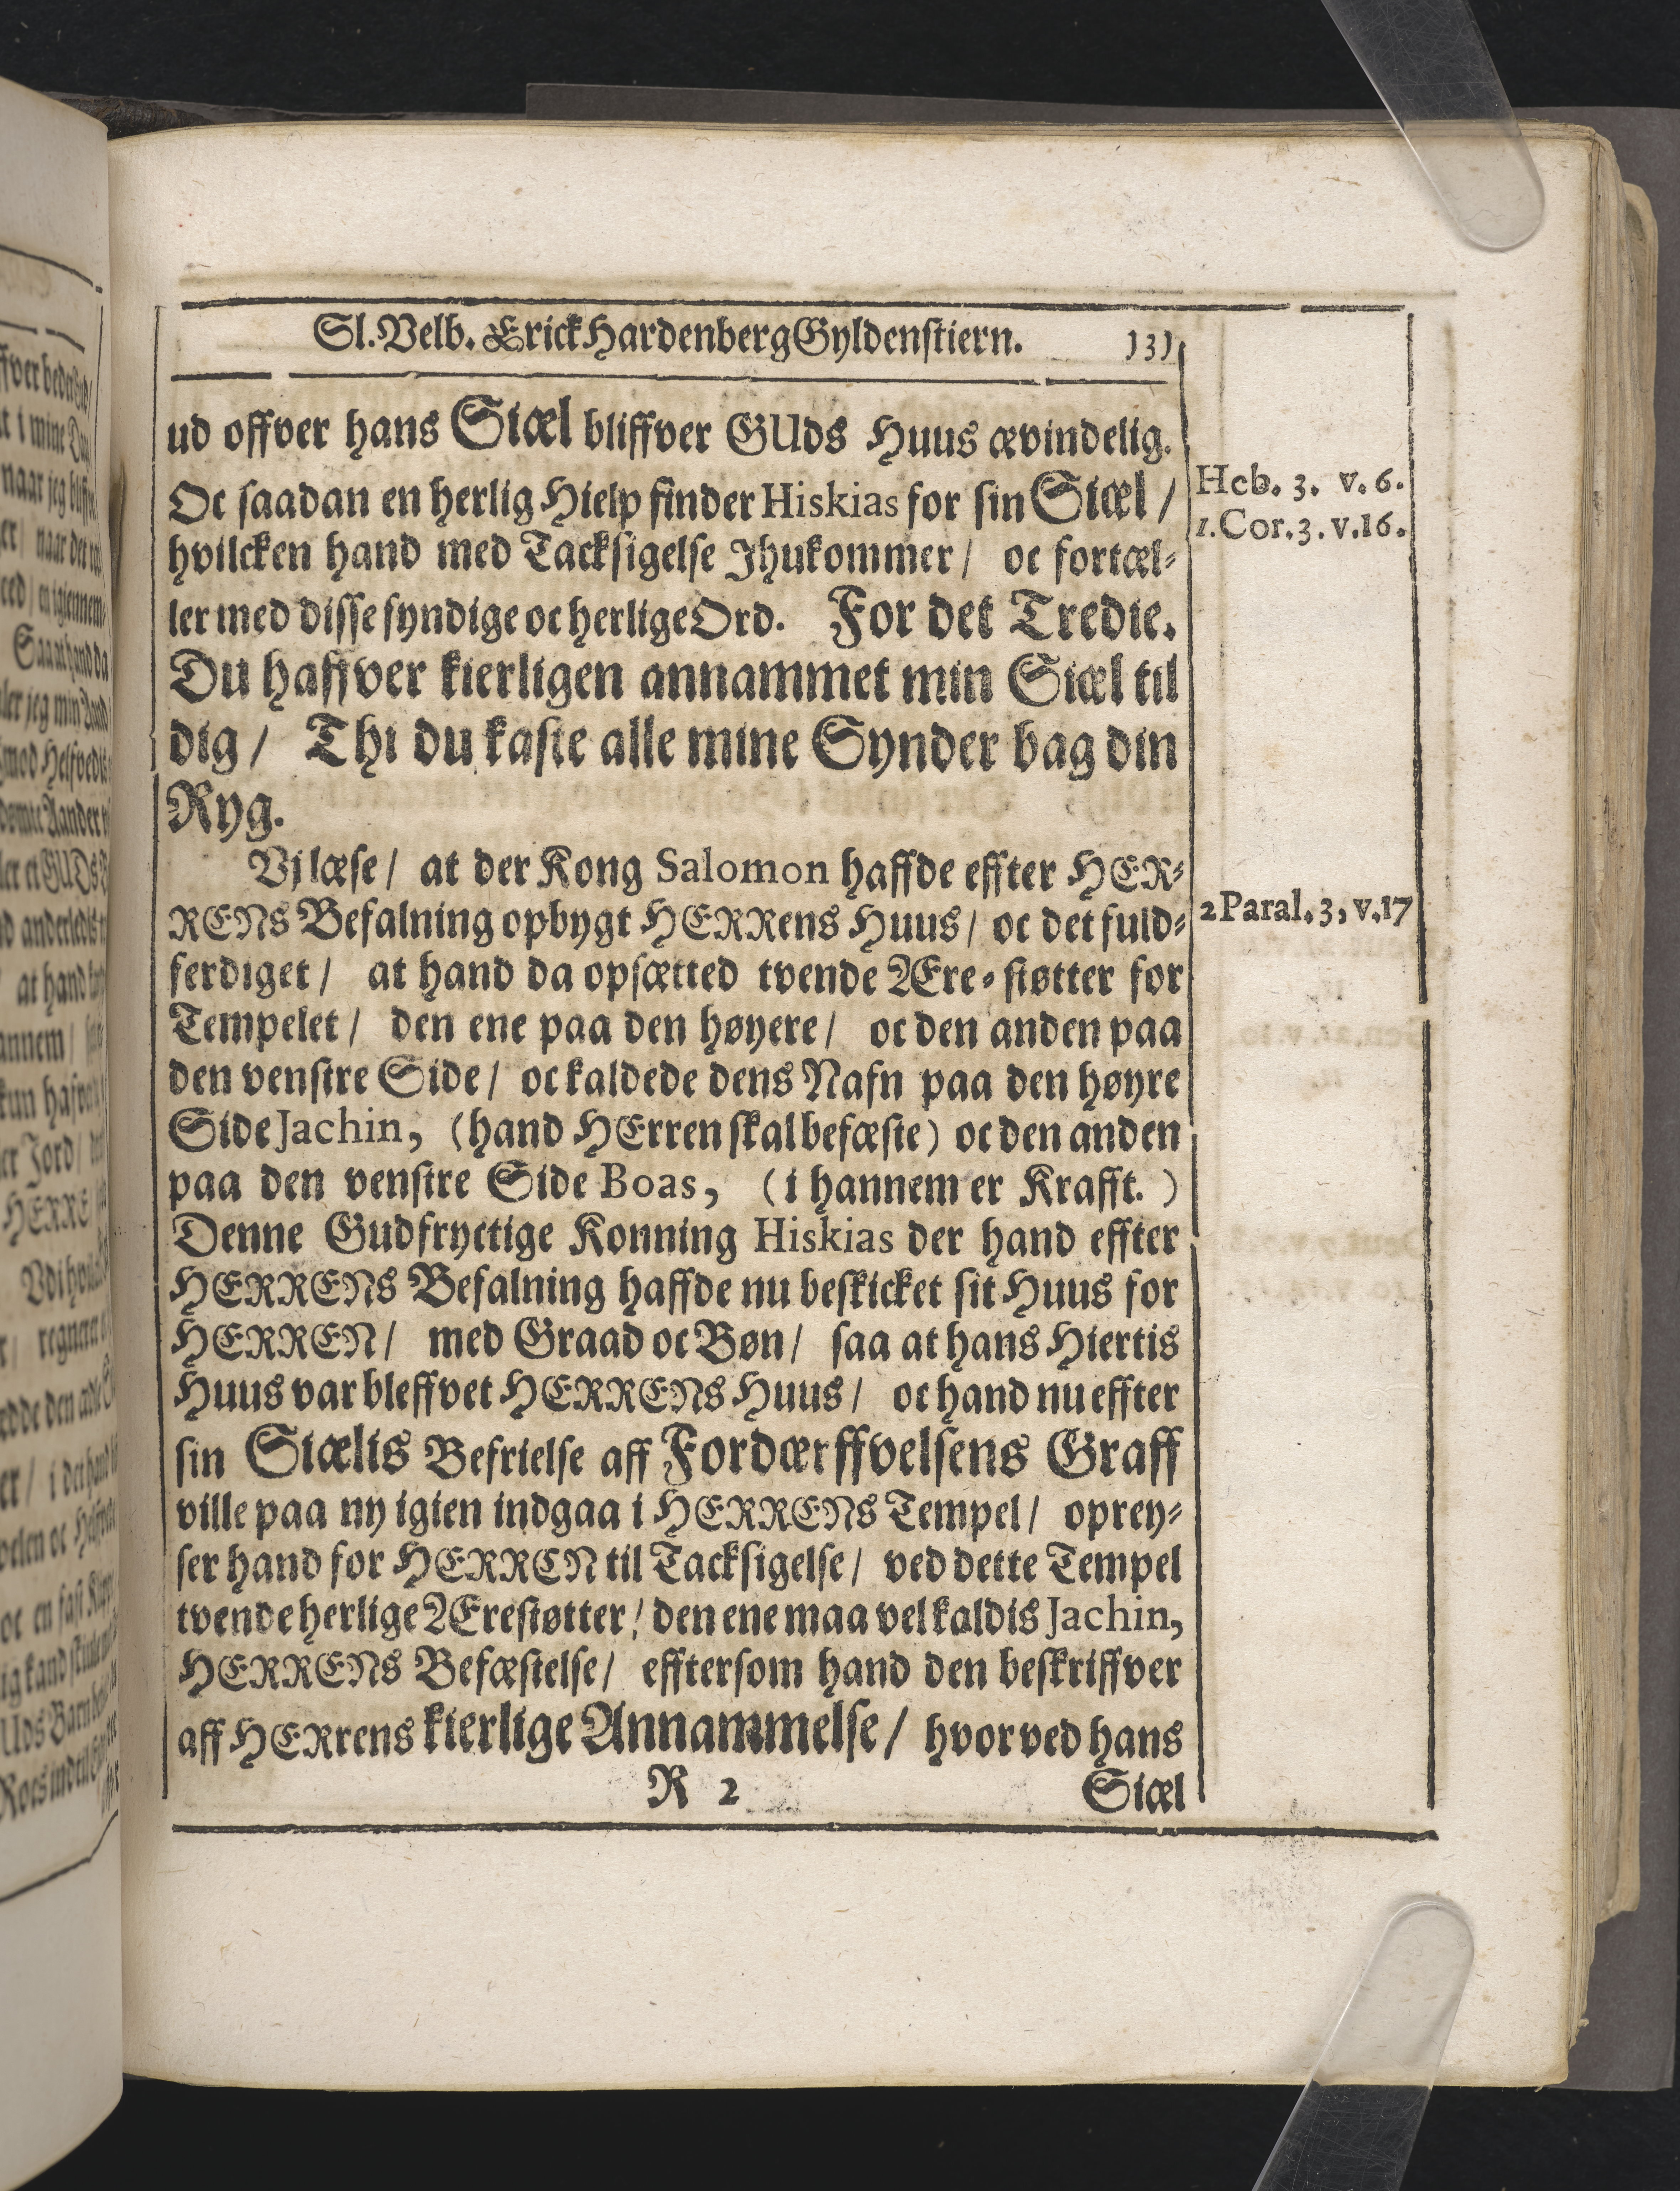 Sl. Velb. Erick Hardenberg Gyldenstiern. 131
ud offver hans Siæl bliffver GUds Huus ævindelig.
Oc saadan en herlig Hielp finder Hiskias for sin Siæl /
hvilcken hand med Tacksigelse Jhukommer / oc fortæl-
ler med disse syndige oc herlige Ord. For det Tredie.
Du haffver kierligen annammet min Siæl til
dig / Thi du kaste alle mine Synder bag din
Ryg.
Vi læse / at der Kong Salomon haffde effter HER-
RENs Befalning opbygt HERRens Huus / oc det fuld-
ferdiget / at hand da opsætted tvende Ære-støtter for
Tempelet / den ene paa den høyere / oc den anden paa
den venstre Side / oc kaldede dens Nafn paa den høyre
Side Jachin, (hand HErren skal befæste) oc den anden
paa den venstre Side Boas, (i hannem er Krafft.)
Denne Gudfryctige Konning Hiskias der hand effter
HERRENs Befalning haffde nu beskicket sit Huus for
HERREN / med Graad oc Bøn / saa at hans Hiertis
Huus var bleffvet HERRENs Huus / oc hand nu effter
sin Siælis Befrielse aff Fordærffvelsens Graff
ville paa ny igien indgaa i HERRENs Tempel / oprey-
ser hand for HERREN til Tacksigelse / ved dette Tempel
tvende herlige Ærestøtter / den ene maa vel kaldis Jachin,
HERRENs Befæstelse / efftersom hand den beskriffver
aff HERrens kierlige Annammelse / hvorved hans
R 2 Siæl
Heb. 3. v. 6.
1. Cor. 3. v. 16.
2 Paral. 3, v. 17